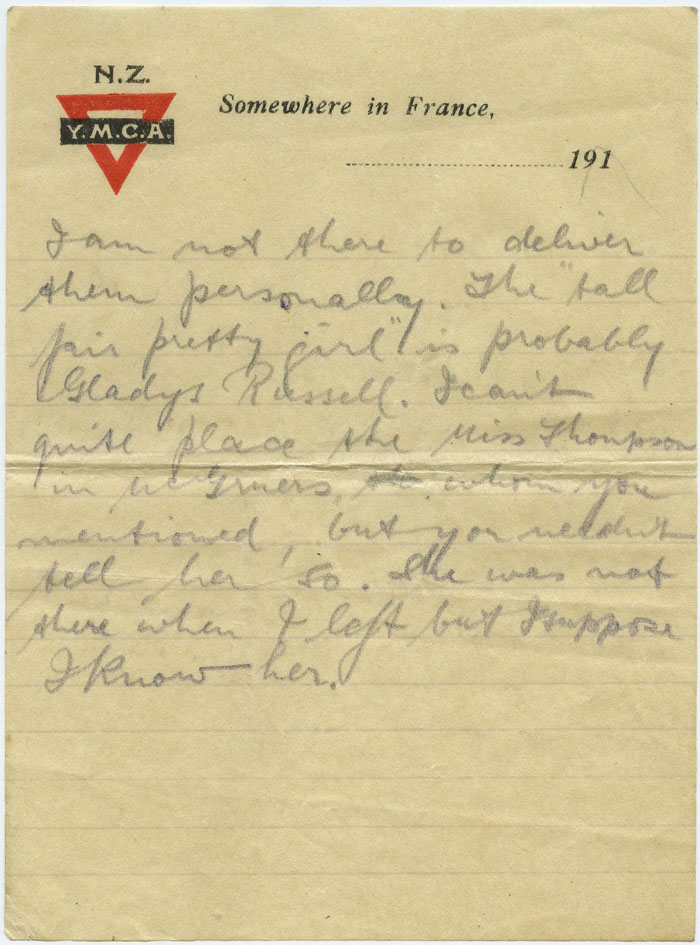 N.Z.
Y.M.C.A.
Somewhere in France,
191
I am not there to deliver
them personally. The "tall
fair pretty girl" is probably
Gladys Russell. I can't
quite place the Miss Thompson
in McGruers, whom you
mentioned, but you needn't
tell her so. She was not
there when I left but I suppose
I know her.